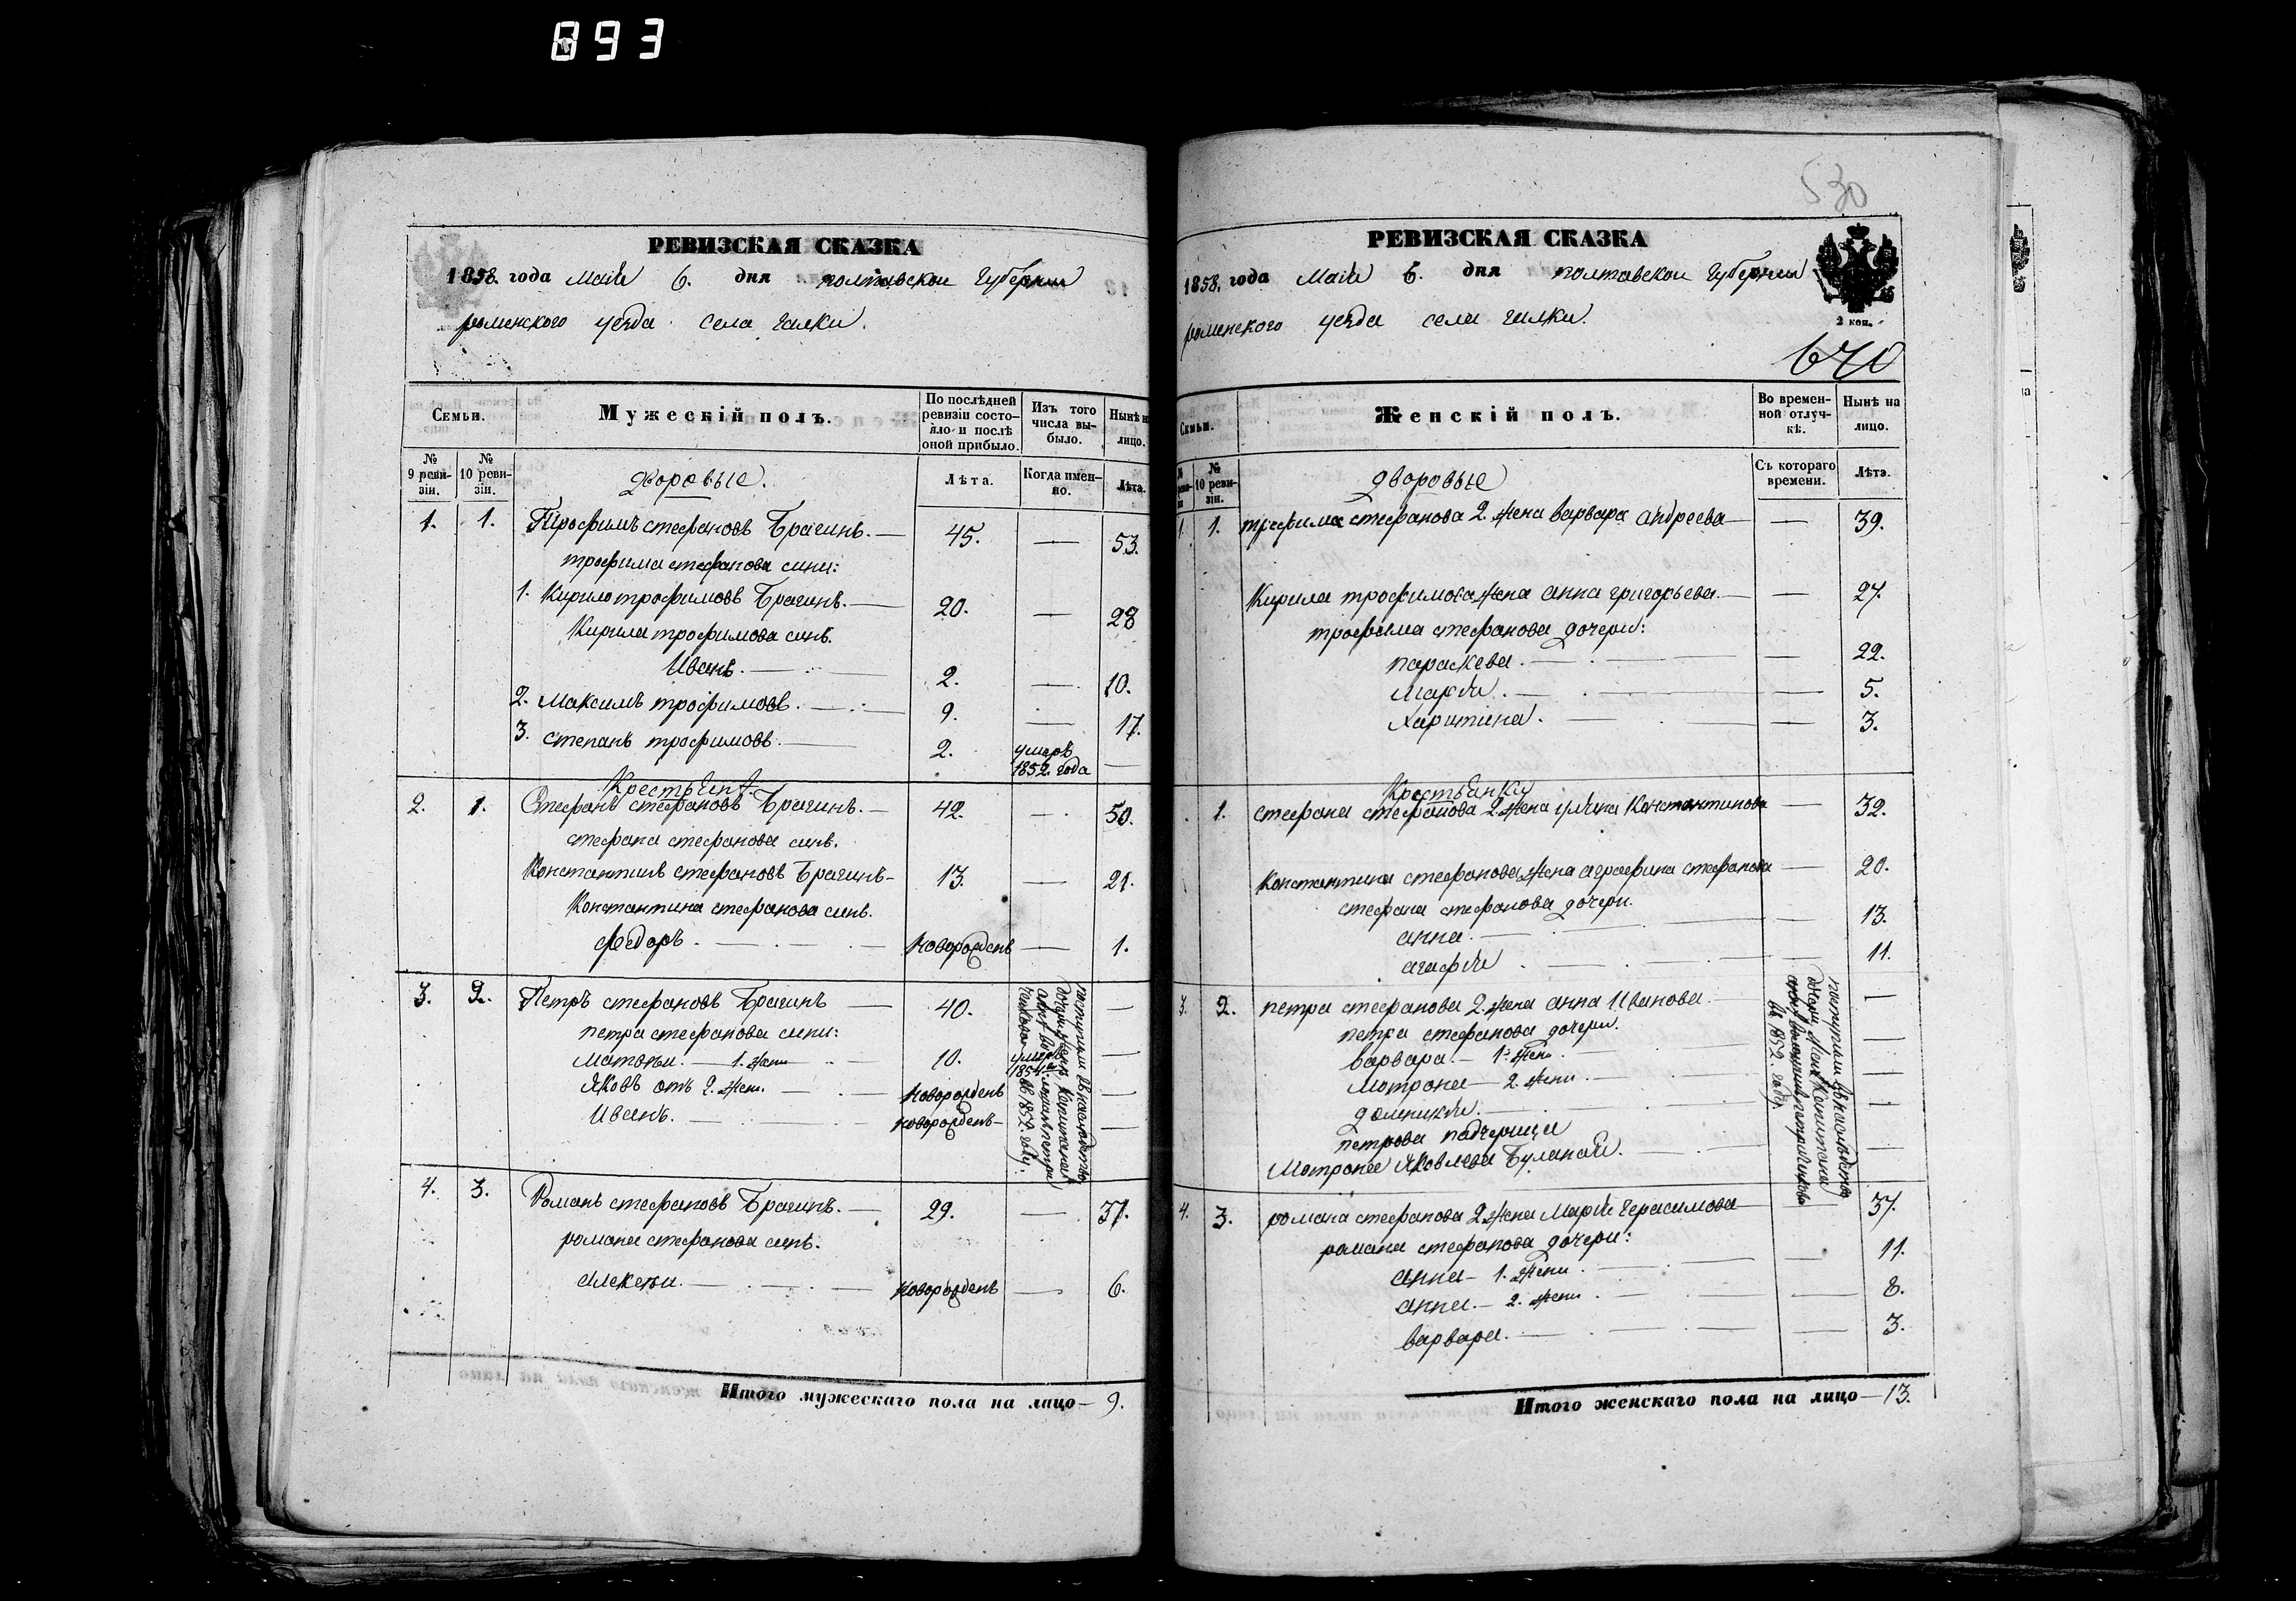 893
РЕВИЗСКАЯ СКАЗКА
1858. года Маія 6. дня полтавской губерніи
роменского уезда села галки.
Семьи.
Мужескій полъ.
По послѣдней ревизіи состояло и послѣ оной прибыло.
Изъ того числа выбыло.
Нынѣ на лицо.
№ 9 ревизіи.
№ 10 ревизіи.
дворовые.
Лѣта.
Когда именно.
Лѣта.
1. 1. Трофимъ стефановъ Брагинъ. — 45. — 53.
трофима стефанова сини:
1. Кирило трофимовъ Брагинъ. — 20. — 28
Кирила трофимова синъ.
Иванъ. — 2. — 10.
2. Максимъ трофимовъ. — 9. — 17.
3. степанъ трофимовъ. — 2. умеръ 1852. года —
Крестьяне.
2. 1. Стефанъ стефановъ Брагинъ. — 42. — 50.
стефана стефанова синъ.
Константинъ стефановъ Брагинъ — 13. — 21.
Константина стефанова синъ.
Федоръ. — новорожденъ — 1.
3. 2. Петръ стефановъ Брагинъ — 40. —
петра стефанова сини:
Матвѣй. — 1. жени — 10. умеръ 1854. —
Яковъ отъ 2. жени. — новорожденъ —
Иванъ. — новорожденъ —
поступили въ наследство
въ 1852. году.
4. 3. Романъ стефановъ Брагинъ. — 29. — 37.
романа стефанова синъ.
алексѣй. — новорожденъ — 6.
Итого мужескаго пола на лицо — 9.
530
РЕВИЗСКАЯ СКАЗКА
1858. года Маія 6. дня полтавской губерніи
роменского уезда села галки.
2 коп.
670
Семьи.
Женскій полъ.
Во временной отлучкѣ.
Нынѣ на лицо.
№ 10 ревизіи.
дворовые
Съ котораго времени.
Лѣта.
1. 1. трофима стефанова 2. жена варвара андреева — — 39.
Кирила трофимова жена анна григорьева. — — 27.
трофима стефанова дочери:
параскева. — — 22.
Марія. — — 5.
Харитина. — — 3.
Крестьянки
1. стефана стефанова 2. жена улияна Константинова — 32.
Константина стефанова жена аграфина стефанова — 20.
стефана стефанова дочери.
анна. — — 13.
агафія — 11.
3. 2. петра стефанова 2. жена анна Иванова. — —
петра стефанова дочери.
варвара. — 1й жени. — —
Мотрона — 2. жени. — —
домникія. — —
петрова падчерица
Мотрона Яковлева Буланой. — —
поступили въ наследство
въ 1852. году.
4. 3. романа стефанова 2. жена Марія Герасимова — 37.
романа стефанова дочери:
анна — 1. жени. — 11.
анна. — 2. жени. — — 8.
варвара. — — 3.
Итого женскаго пола на лицо — 13.